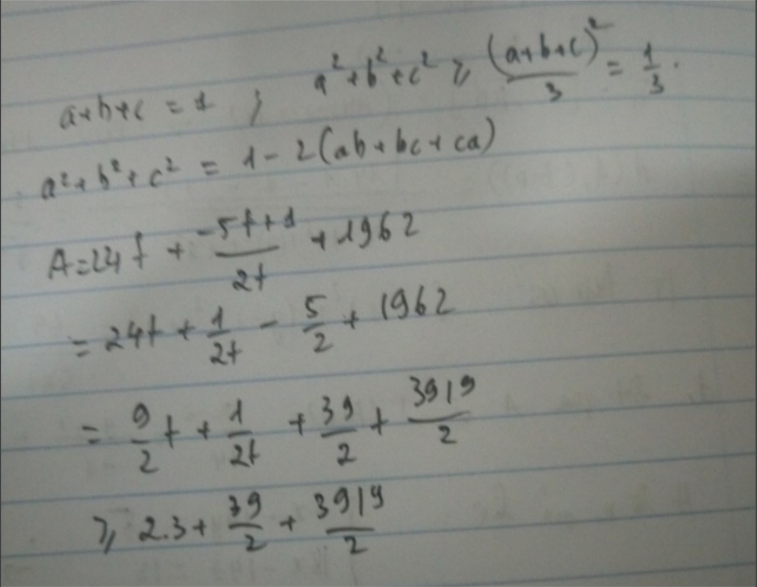 a+b+c = 1 ; a²+b²+c² ≥ (a+b+c)²/3 = 1/3.
a²+b²+c² = 1 - 2(ab+bc+ca)
A = 24t + (-5t+1)/2t + 1962
= 24t + 1/2t - 5/2 + 1962
= 9/2 t + 1/2t + 39/2 + 3919/2
≥ 2.3 + 39/2 + 3919/2